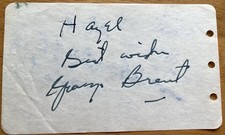 Hazel
Best wishes
George Brent